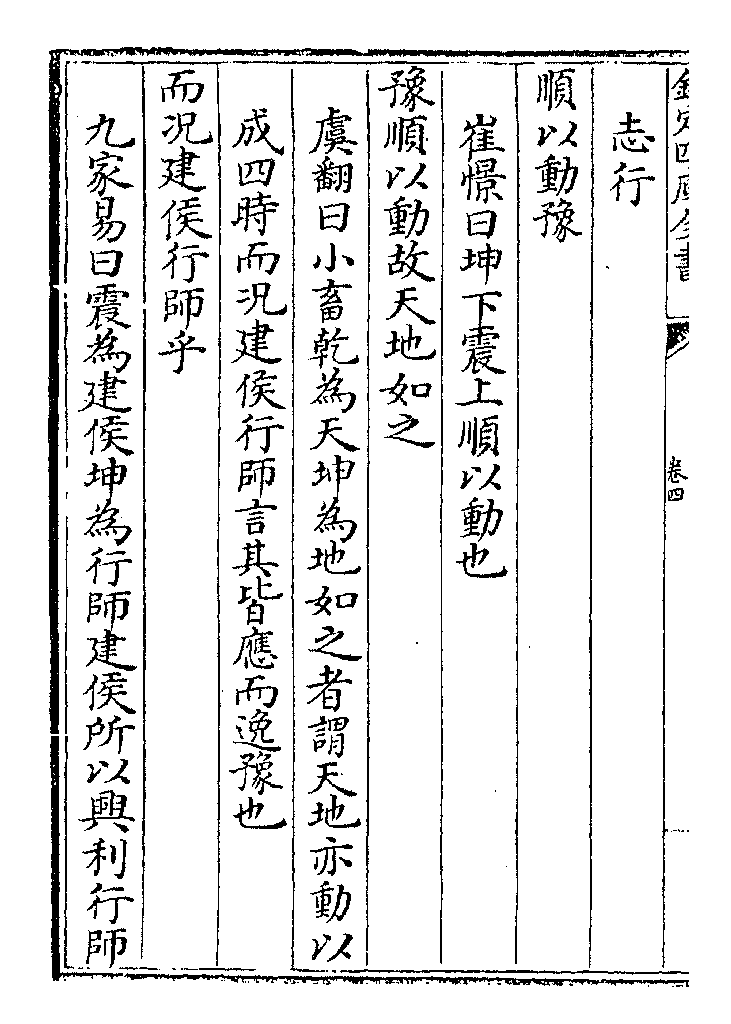 欽定四庫全書
卷四
志行
順以動豫
崔憬曰坤下震上順以動也
豫順以動故天地如之
虞翻曰小畜乾為天坤為地如之者謂天地亦動以
成四時而况建侯行師言其皆應而逸豫也
而况建侯行師乎
九家易曰震為建侯坤為行師建侯所以興利行師